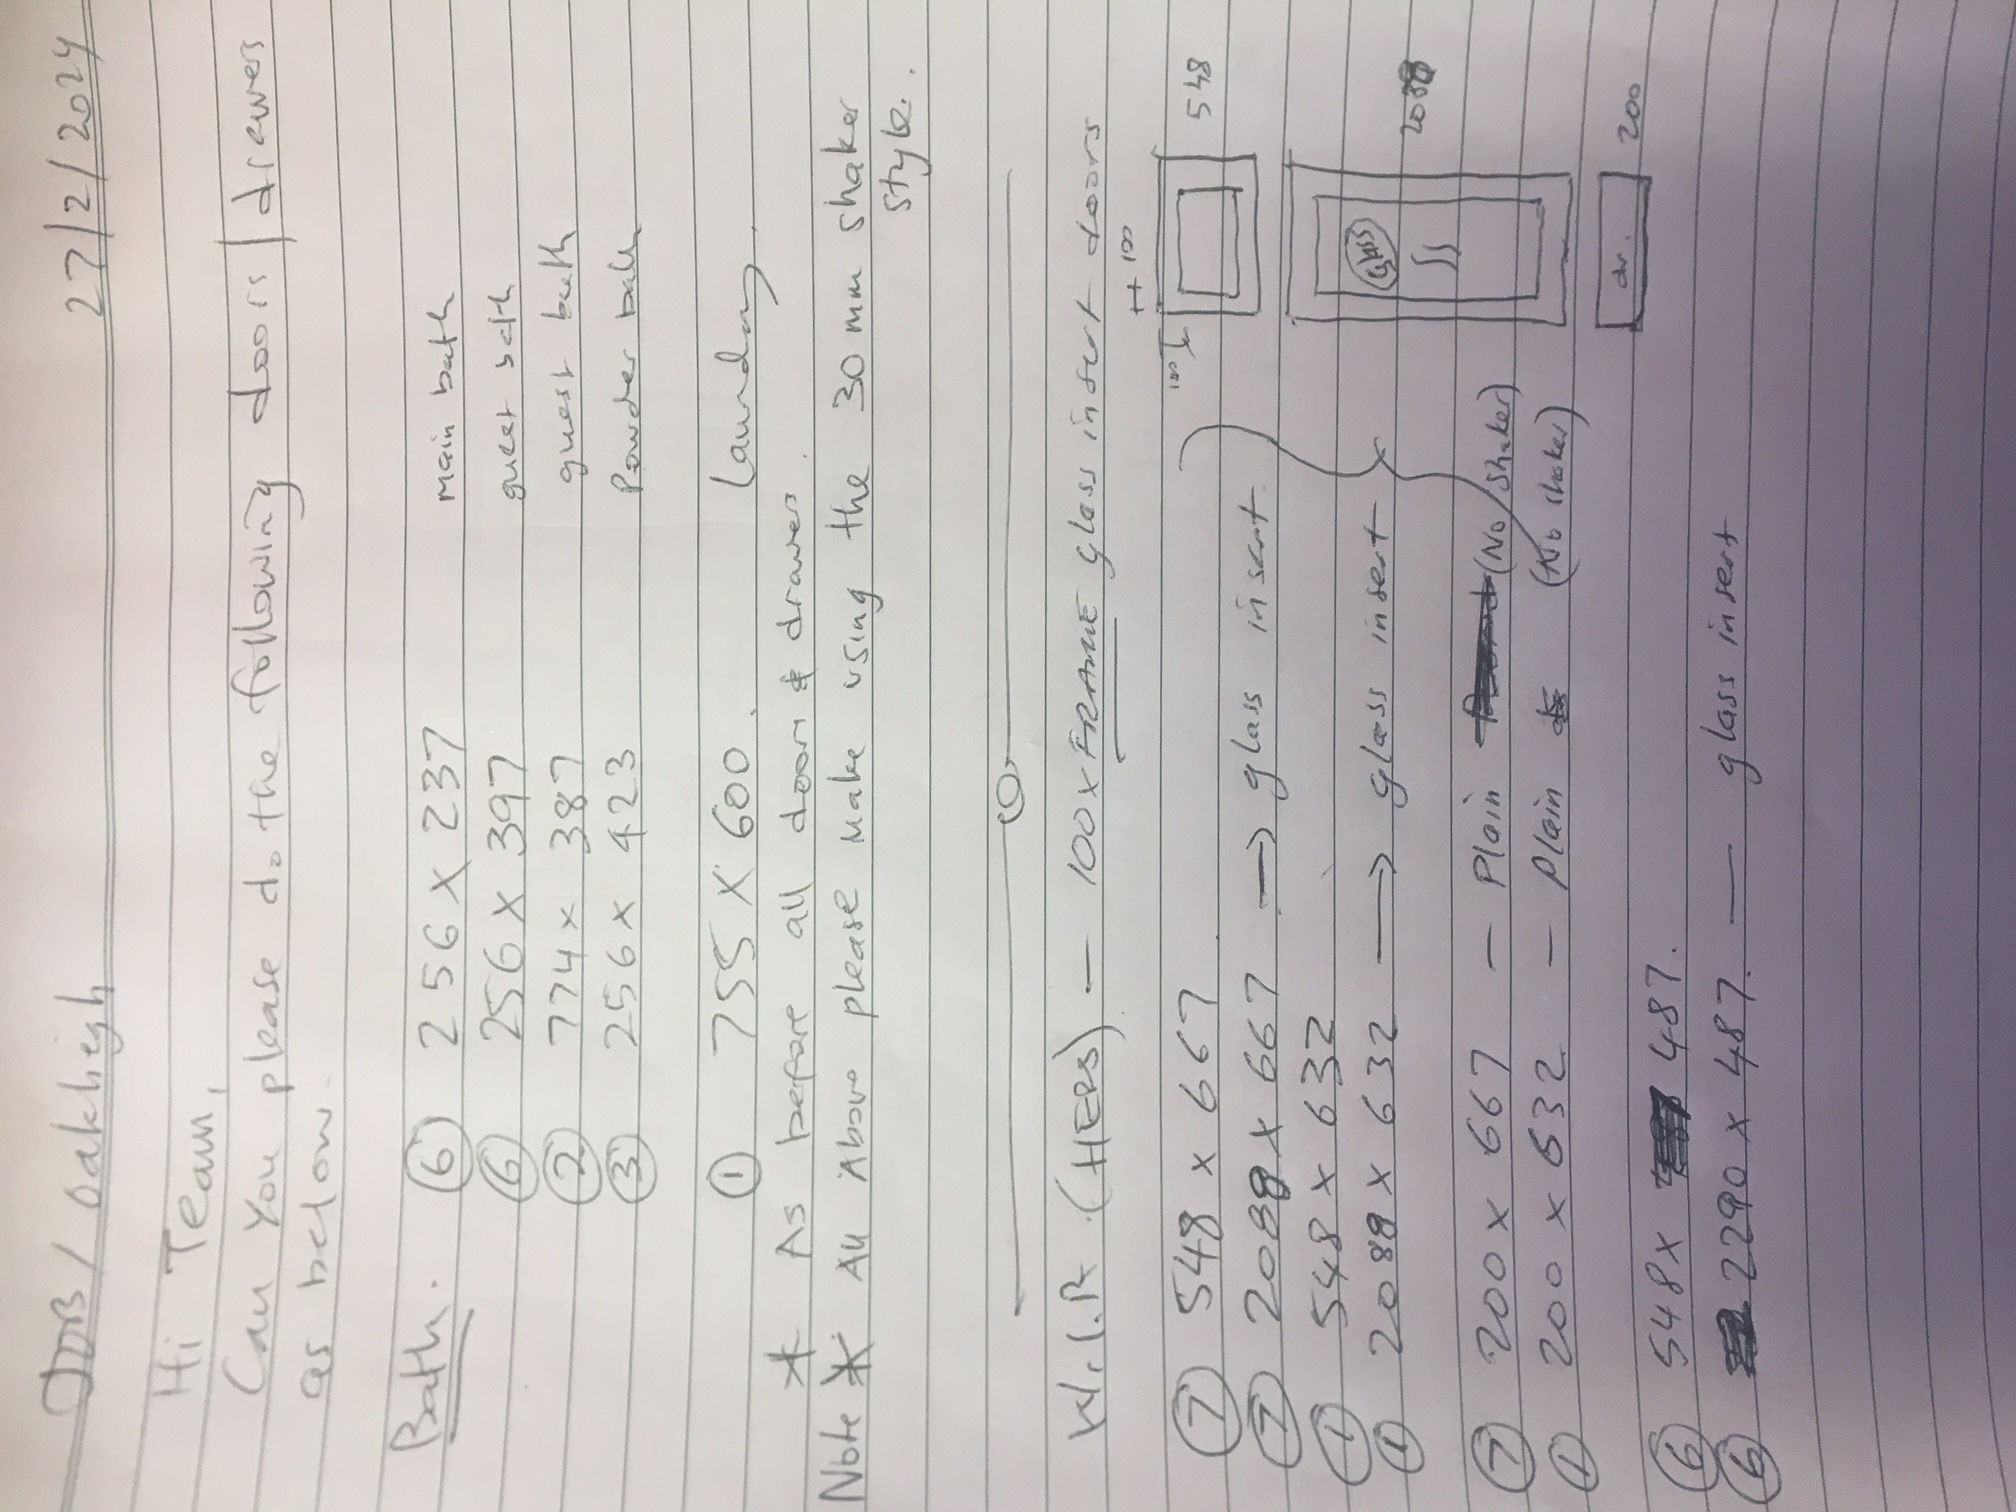 JOB / Oakleigh 27/2/2024
Hi Team,
Can you please do the following doors / drawers
as below.
Bath. ⑥ 256 x 237 Main bath
⑥ 256 x 397 guest bath
② 774 x 387 guest bath
③ 256 x 423 Powder bath
① 755 x 600 Laundry
* As before all doors & drawers
Note * All Above please make using the 30 mm shaker
style.
W.I.R. (HERS) — 100x FRAME glass insert doors
100 100
⑦ 548 x 667 548
⑦ 2088 x 667 → glass insert
① 548 x 632
① 2088 x 632 → glass insert
Glass
2088
⑦ 200 x 667 — Plain (No shaker)
① 200 x 632 — Plain (No shaker)
dr. 200
⑥ 548 x 487
⑥ 2290 x 487 — glass insert